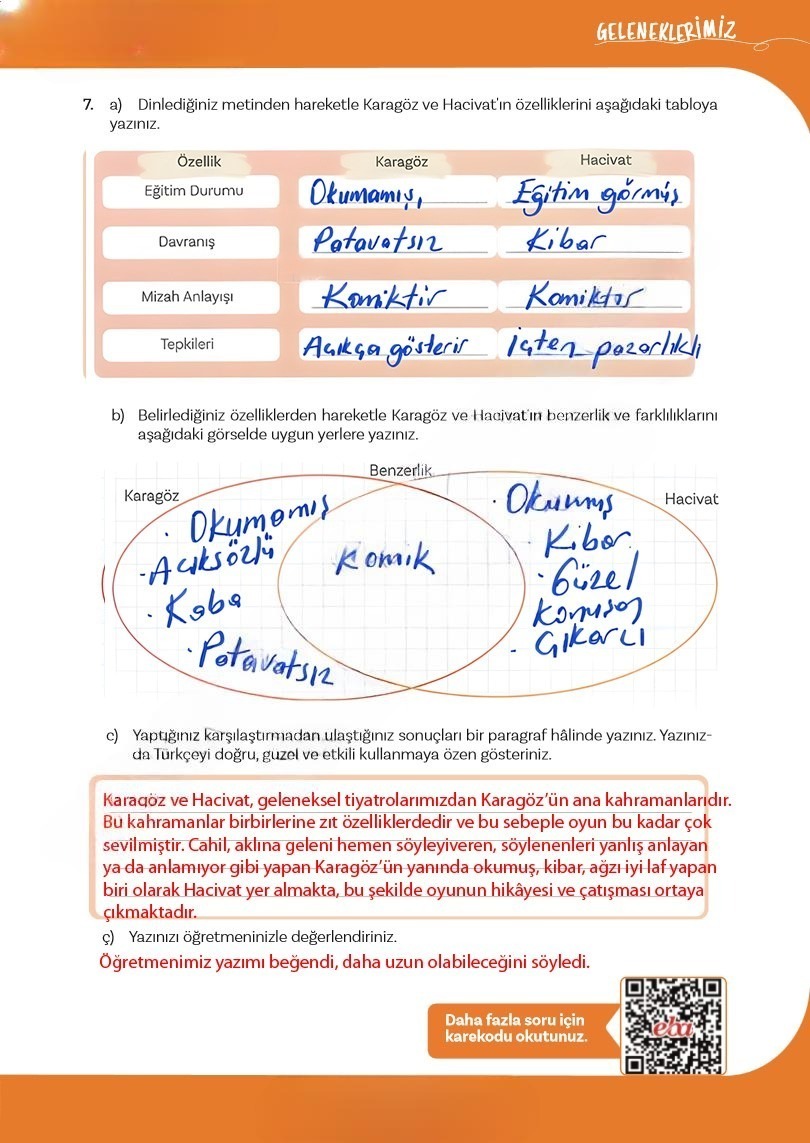 GELENEKLERİMİZ
7. a) Dinlediğiniz metinden hareketle Karagöz ve Hacivat'ın özelliklerini aşağıdaki tabloya
yazınız.
Özellik Karagöz Hacivat
Eğitim Durumu Okumamış, Eğitim görmüş
Davranış Patavatsız Kibar
Mizah Anlayışı Komiktir Komiktir
Tepkileri Açıkça gösterir İçten pazarlıklı
b) Belirlediğiniz özelliklerden hareketle Karagöz ve Hacivat'ın benzerlik ve farklılıklarını
aşağıdaki görselde uygun yerlere yazınız.
Benzerlik
Karagöz
Hacivat
· Okumamış
· Açıksözlü
· Kaba
· Patavatsız
Komik
· Okumuş
· Kibar
· Güzel
konuşan
· Çıkarcı
c) Yaptığınız karşılaştırmadan ulaştığınız sonuçları bir paragraf hâlinde yazınız. Yazınız-
da Türkçeyi doğru, güzel ve etkili kullanmaya özen gösteriniz.
Karagöz ve Hacivat, geleneksel tiyatrolarımızdan Karagöz'ün ana kahramanlarıdır.
Bu kahramanlar birbirlerine zıt özelliklerdedir ve bu sebeple oyun bu kadar çok
sevilmiştir. Cahil, aklına geleni hemen söyleyiveren, söylenenleri yanlış anlayan
ya da anlamıyor gibi yapan Karagöz'ün yanında okumuş, kibar, ağzı iyi laf yapan
biri olarak Hacivat yer almakta, bu şekilde oyunun hikâyesi ve çatışması ortaya
çıkmaktadır.
ç) Yazınızı öğretmeninizle değerlendiriniz.
Öğretmenimiz yazımı beğendi, daha uzun olabileceğini söyledi.
Daha fazla soru için
karekodu okutunuz.
eba